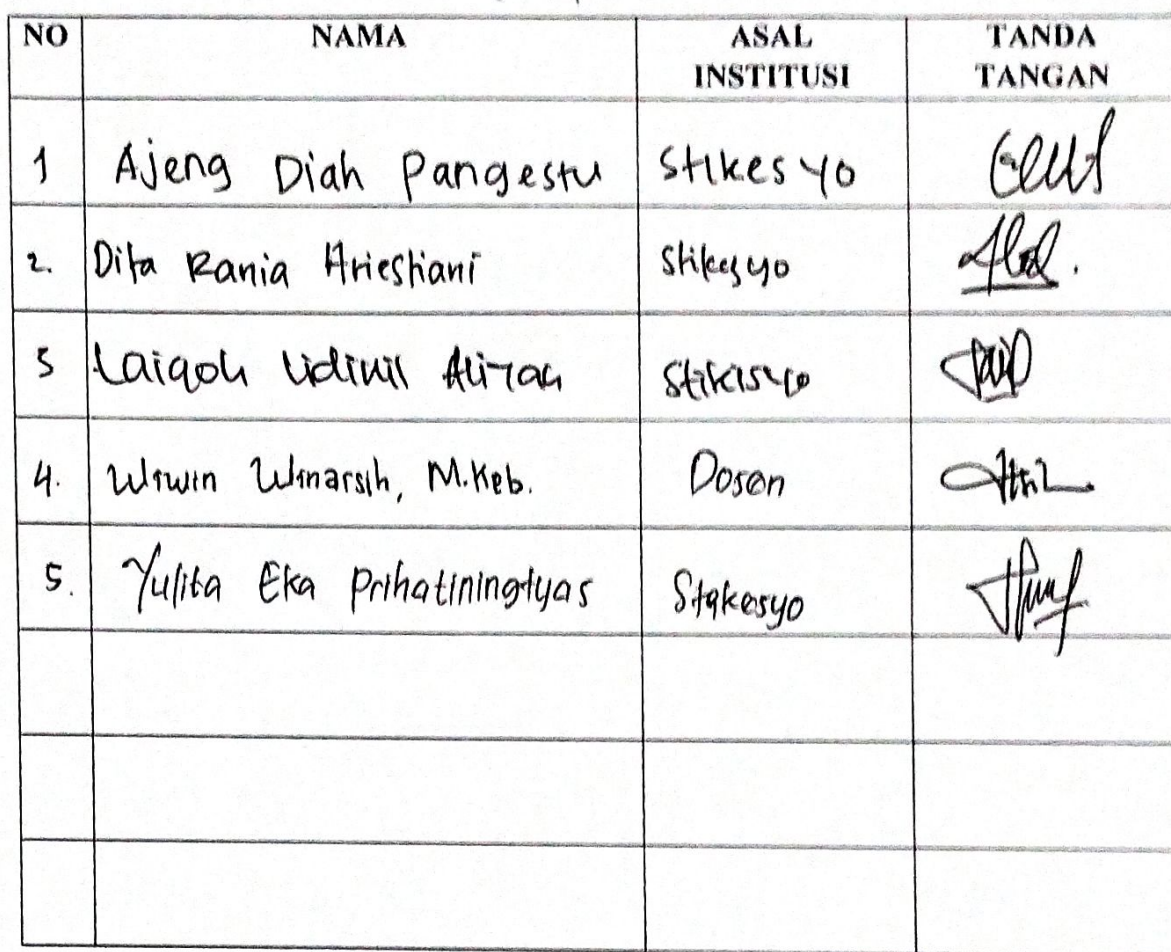 NO NAMA ASAL INSTITUSI TANDA TANGAN
1 Ajeng Diah Pangestu Stikes yo
2. Dita Rania Ariestiani Stikesyo
3 Laiqoh
4. Wiwin Winarsih, M.Keb. Dosen
5. Yulita Eka Prihatiningtyas Stikesyo